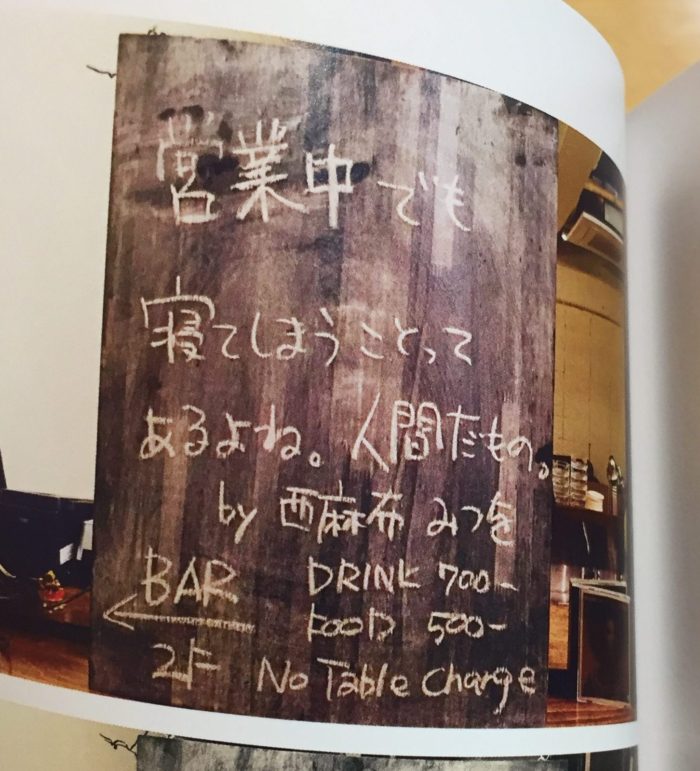 営業中でも
寝てしまうことって
あるよね。人間だもの。
by 西麻布 みつを
BAR DRINK 700-
FOOD 500-
2F No Table Charge